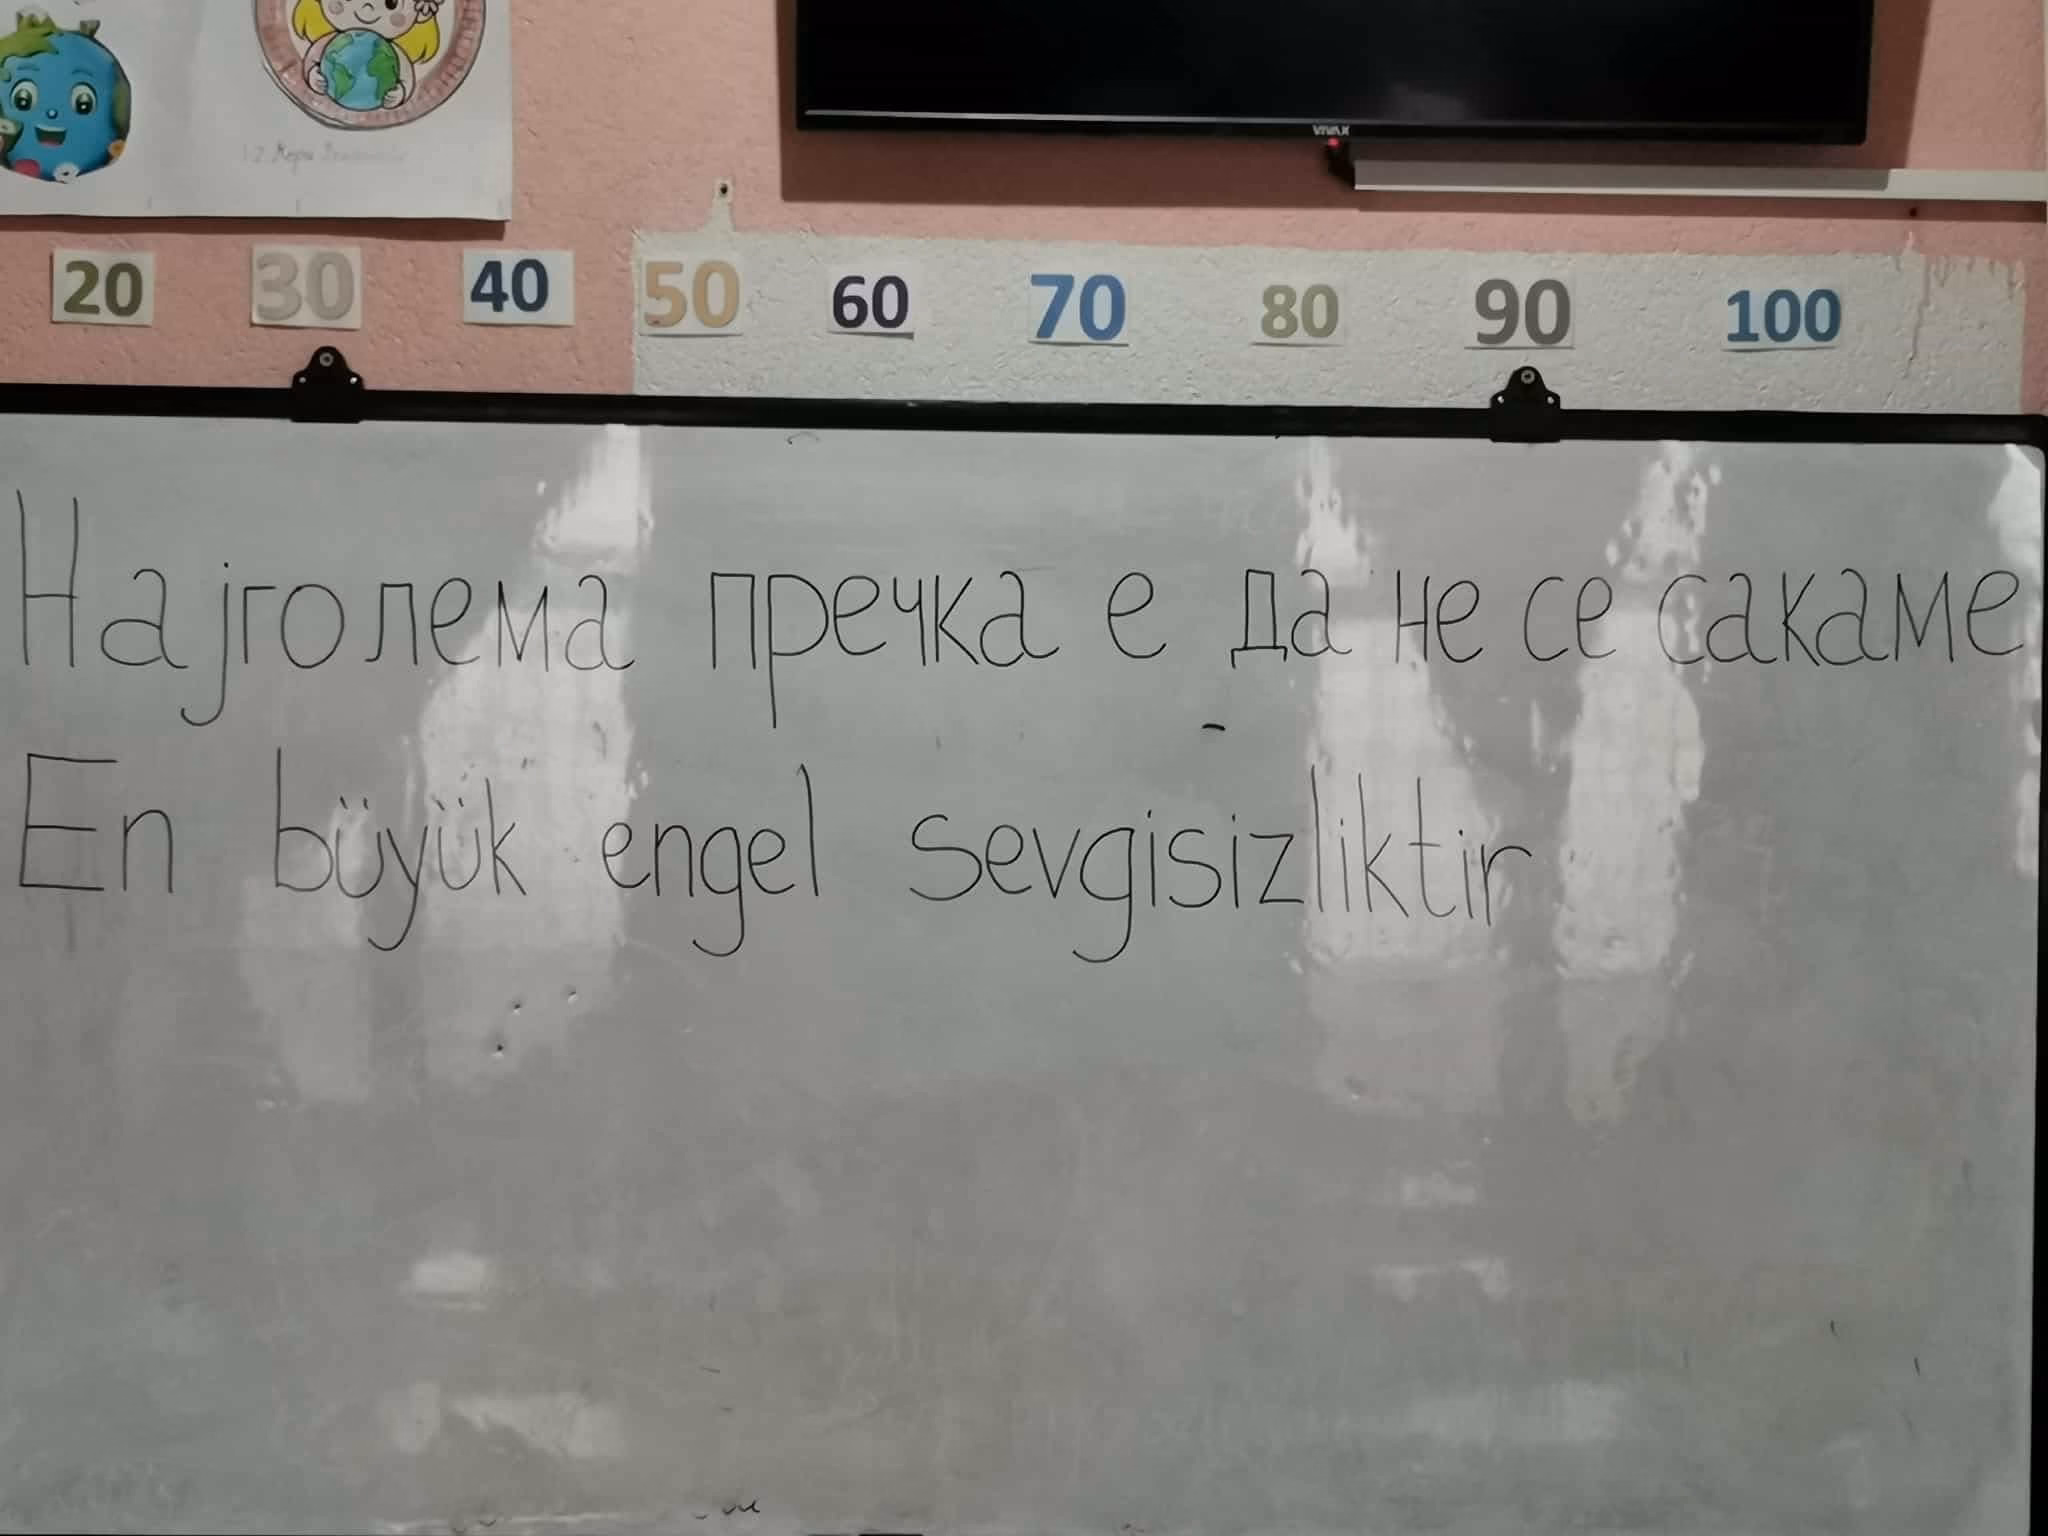 VIVAX
20 30 40 50 60 70 80 90 100
Најголема пречка е да не се сакаме
En büyük engel sevgisizliktir